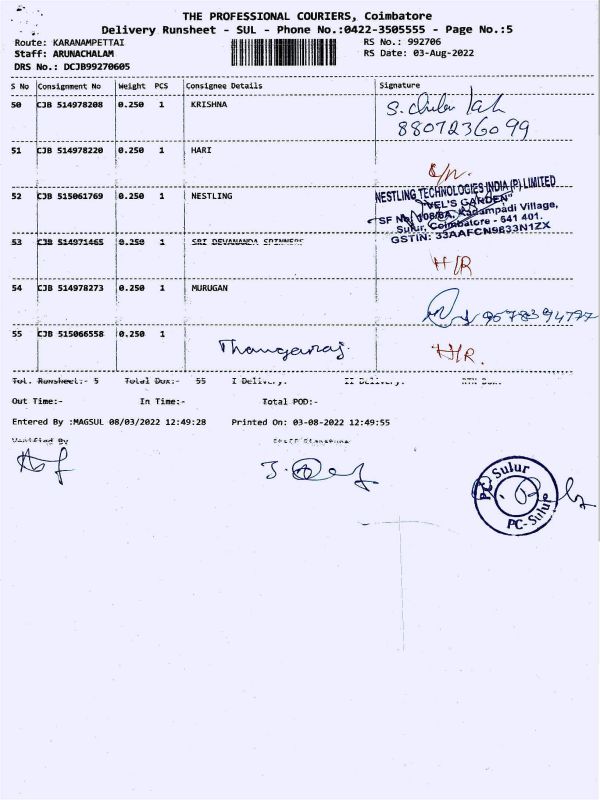 THE PROFESSIONAL COURIERS, Coimbatore
Delivery Runsheet - SUL - Phone No.:0422-3505555 - Page No.:5
Route: KARANAMPETTAI RS No.: 992706
Staff: ARUNACHALAM RS Date: 03-Aug-2022
DRS No.: DCJB99270605
S No Consignment No Weight PCS Consignee Details Signature
50 CJB 514978208 0.250 1 KRISHNA
8807236099
51 CJB 514978220 0.250 1 HARI
52 CJB 515061769 0.250 1 NESTLING
NESTLING TECHNOLOGIES INDIA (P) LIMITED
"VEL'S GARDEN"
SF No. 108/8A, Kadampadi Village,
Sulur, Coimbatore - 641 401.
GSTIN: 33AAFCN9833N1ZX
53 CJB 514971465 0.250 1 SRI DEVANANDA SPINNERS
H/R
54 CJB 514978273 0.250 1 MURUGAN
55 CJB 515066558 0.250 1
Thangaraj. H/R.
Tot. Runsheet:- 5 Total Dox:- 55 I Delivery. II Delivery. RTN Dox.
Out Time:- In Time:- Total POD:-
Entered By :MAGSUL 08/03/2022 12:49:28 Printed On: 03-08-2022 12:49:55
Verified By Staff Signature
PC Sulur
PC-Sulur